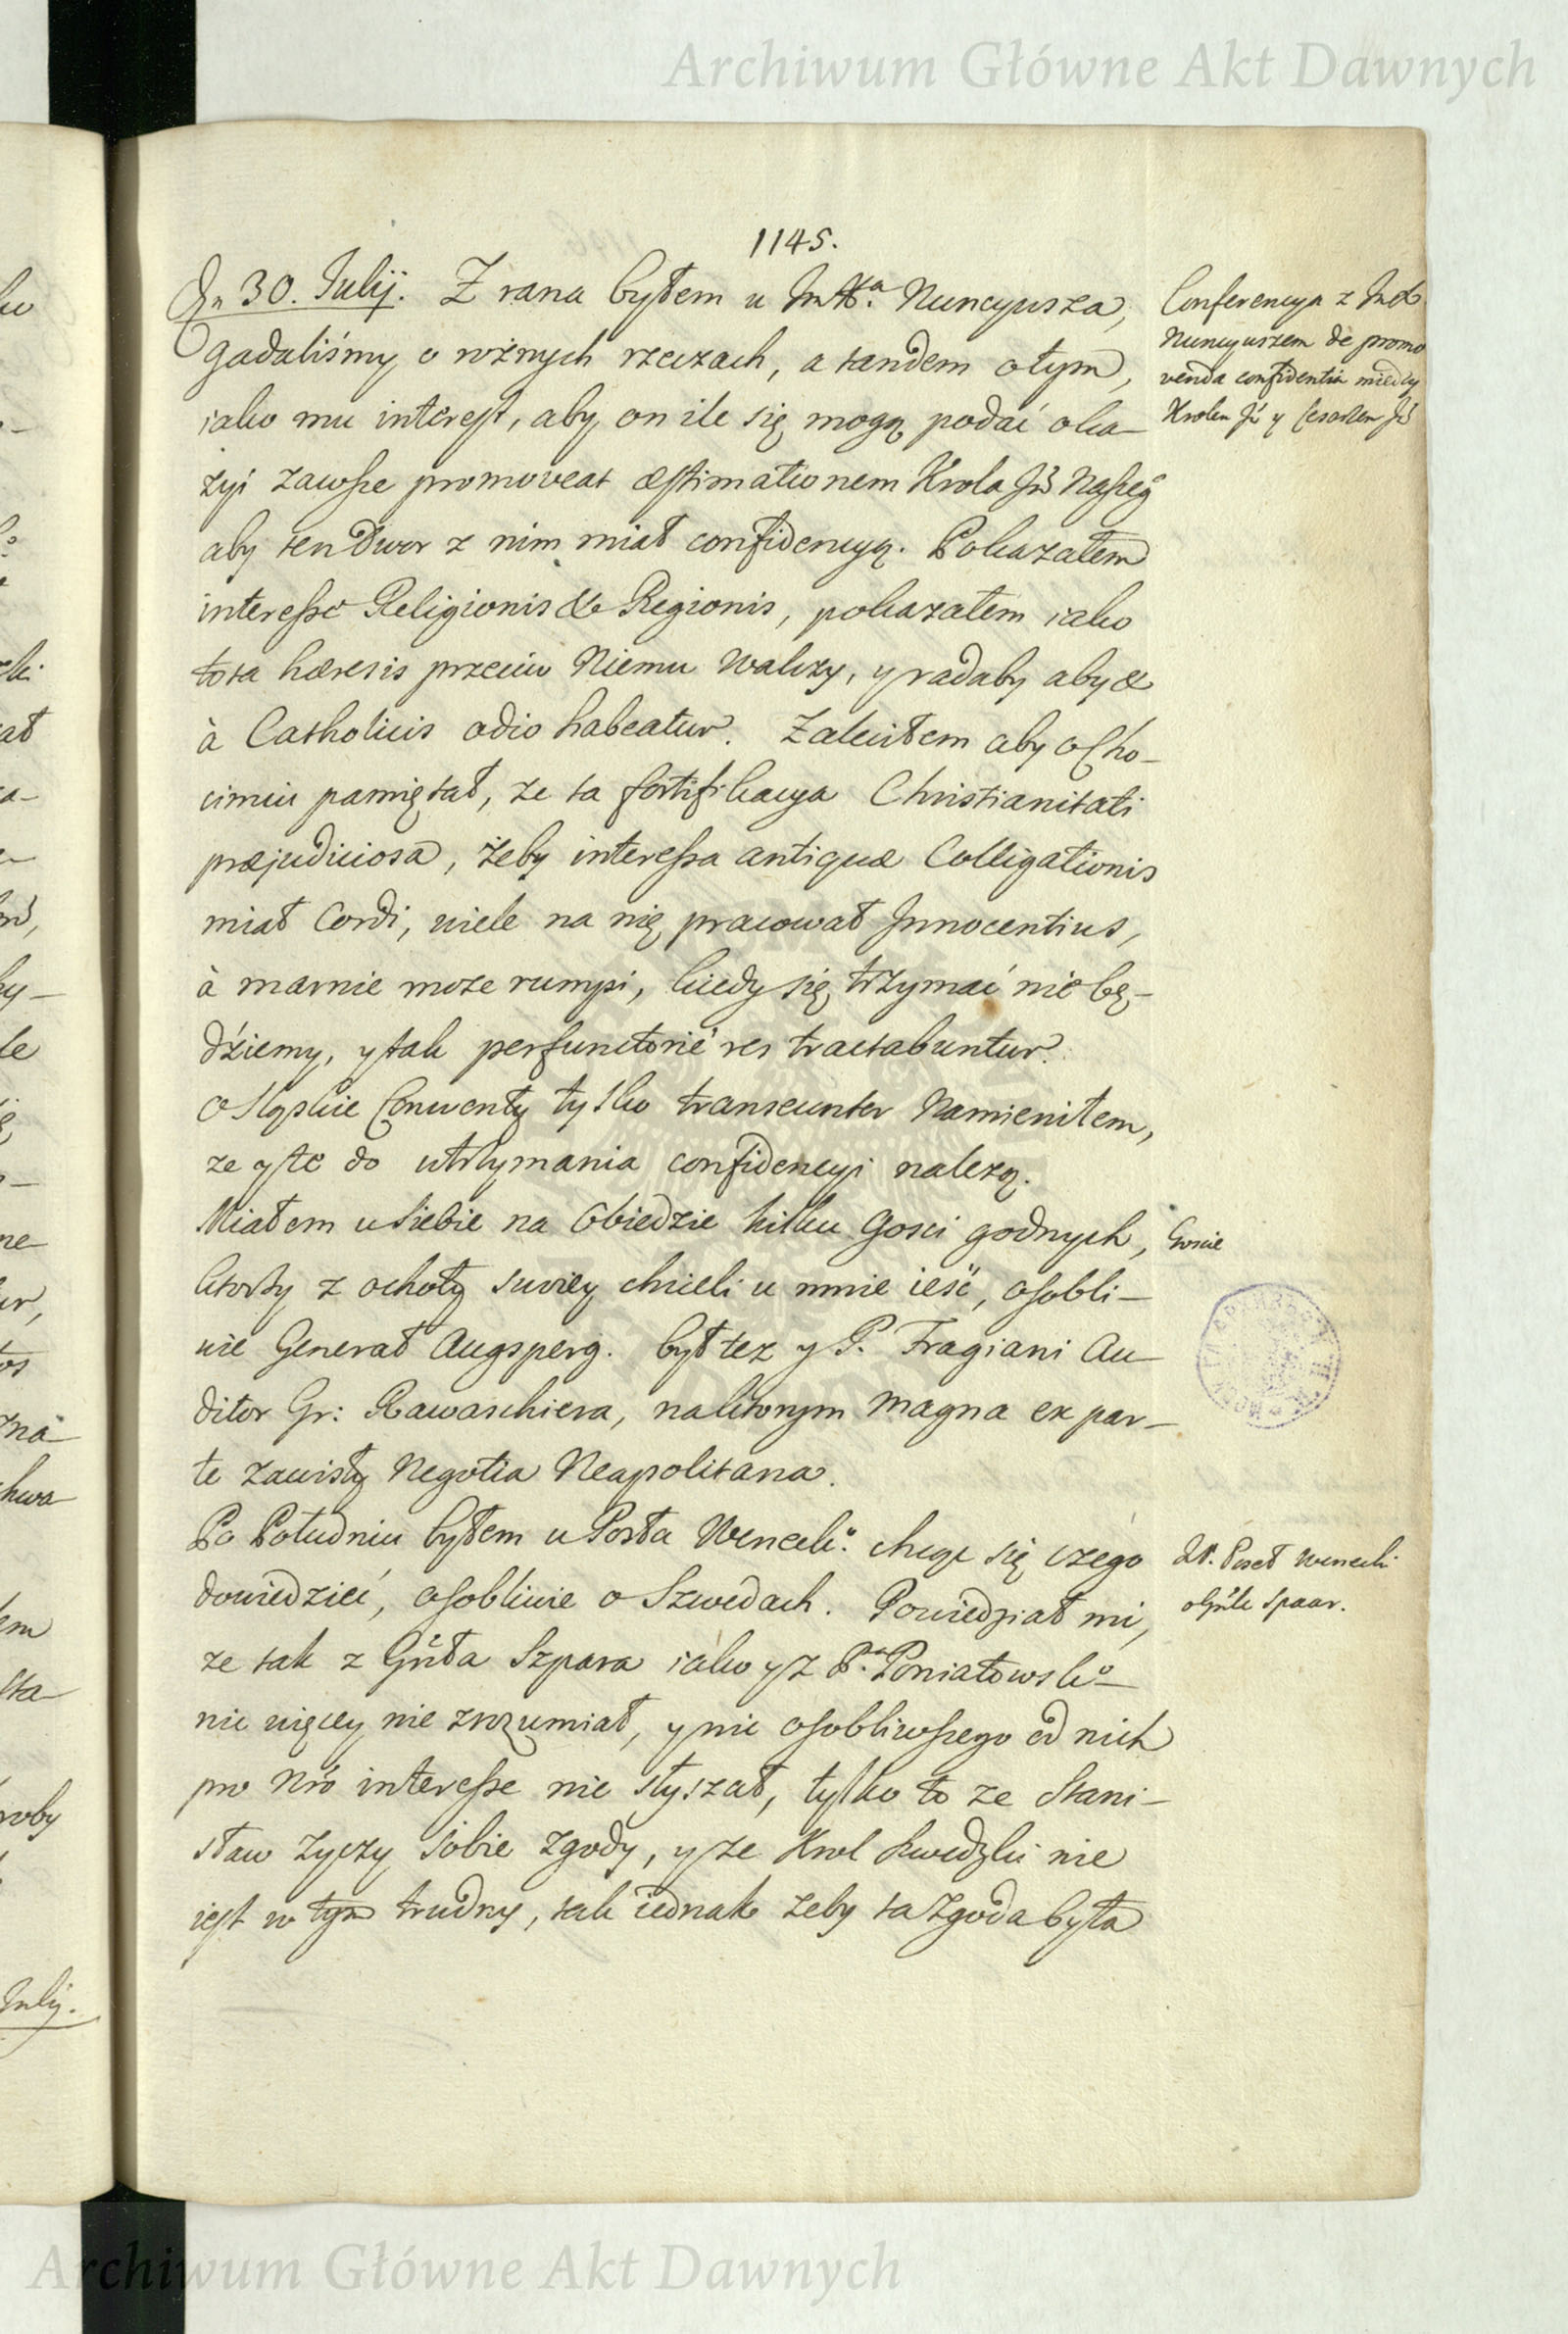 Archiwum Główne Akt Dawnych
1145.
Dn 30. Julij. Z rana byłem u JmXa. Nuncyusza,
gadaliśmy o rożnych rzeczach, a tandem o tym,
iako mu interest, aby on ile się mogą podać oka-
zyi zawsze promoveat æstimationem Krola Jł Naszeg
aby ten Dwor z nim miał confidencyą. Pokazałem
interesse Religionis & Regionis, pokazałem iako
tota hæresis przeciw Niemu walczy, y radaby aby &
à Catholicis odio habeatur. Zaleciłem aby o Cho-
cimiu pamiętał, ze ta fortifikacya Christianitati
præjudiciosa, żeby interessa antiquæ Colligationis
miał Cordi, wiele na nię pracował Innocentius,
à marnie moze rumpi, kiedy się trzymać nie bę-
dźiemy, y tak perfunctoriè res tractabuntur.
O Sląskie Conwenty tylko transeunter Namieniłem,
ze y te do utrzymania confidencyi nalezą.
Miałem u siebie na Obiedzie kilku Gosci godnych,
ktorzy z ochoty swoiey chcieli u mnie ieść, osobli-
wie Generał Augsperg. był tez y P. Fragiani Au-
ditor Gr: Rawaschiera, na ktorym magna ex par-
te zawisły Negotia Neapolitana.
Po Południu byłem u Posła Weneck: chcąc się czego
dowiedzieć, osobliwie o Szwedach. Powiedział mi,
ze tak z Gnła Szpara iako y z Pa. Poniatowsko
nic więcey nie zrozumiał, y nic osobliwszego od nich
pro Nro interesse nie słyszał, tylko to ze Stani-
sław zyczy sobie zgody, y ze Krol Szwedzki nie
iest w tym trudny, tak iednak zeby ta zgoda była
Conferencya z JmX
Nuncyuszem de promo
venda confidentia między
Krolem Jł y Cesarzem Jł
Goscie
Poseł Wenecki
o Gnle Spaar.
Archiwum Główne Akt Dawnych